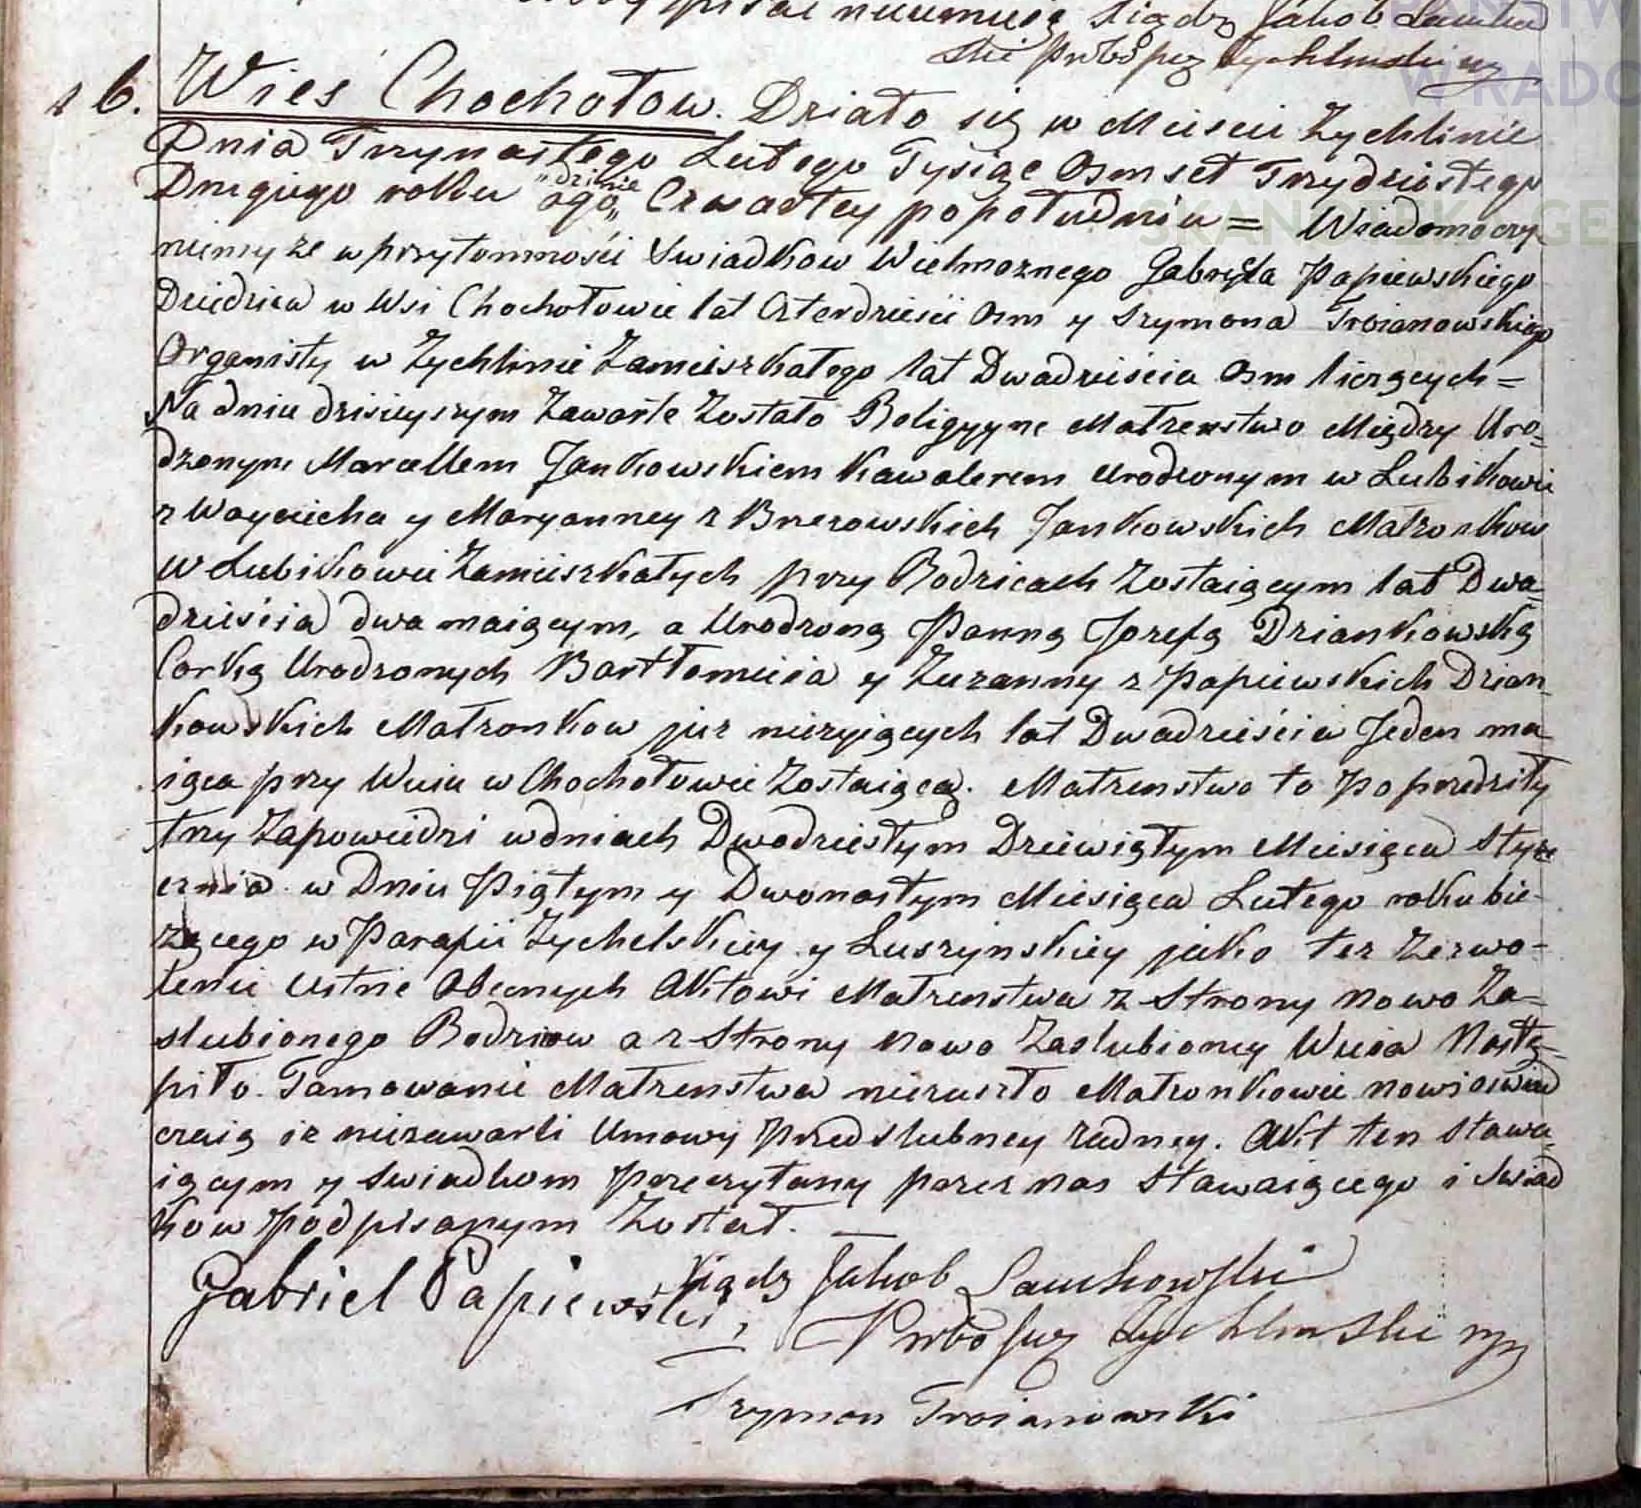 Xiądz Jakob
Proboszcz Zychlinski
16. Wies Chochołow. Działo się w Miescie Zychlinie
Dnia Trzynastego Lutego Tysiąc Osmset Trzydziestego
Drugiego roku o godzinie Czwartey popołudniu = Wiadomo czy-
niemy ze w przytomności Swiadkow Wielmoznego Gabryela Papiewskiego
Dziedzica w Wsi Chochołowie lat Czterdzieści Osm y Szymona Troianowskiego
Organisty w Zychlinie Zamieszkałego lat Dwadzieścia Osm liczących =
Na dniu dzisieyszym Zawarte Zostało Religyyne Małzenstwo Między Uro=
dzonym Marcellem Jankowskiem Kawalerem Urodzonym w Lubikowie
z Woyciecha y Maryanney z Brzezowskich Jankowskich Małzonkow
w Lubikowie Zamieszkałych przy Rodzicach Zostaiącym lat Dwa=
dzieścia dwa maiącym, a Urodzoną Panną Jozefą Dziankowską
Corką Urodzonych Bartłomieia y Zuzanny z Papiewskich Dzian-
kowskich Małzonkow juz niezyiących lat Dwadzieścia Jeden ma
iąca przy Wuiu w Chochołowie Zostaiącą. Małzenstwo to Poprzedziły
trzy Zapowiedzi w dniach Dwudziestym Dziewiątym Miesiąca Stycz
cznia w Dniu Piątym y Dwonastym Miesiąca Lutego roku bie-
zącego w Parafii Zychelskiey y Luszynskiey jako tez Zezwo-
lenie Ustnie Obecnych Aktowi Małzenstwa z Strony Nowo Za=
slubionego Rodzicow a z Strony Nowo Zaslubioney Wuia Nastą-
piło. Tamowanie Małzenstwa niezaszło Małzonkowie nowi oswiad
czaią iz niezawarli Umowy Przedslubney zadney. Akt ten Stawa=
iącym y Swiadkom Przeczytany przez nas Stawaiącego i Swiad
kow Podpisanym Został.
Gabriel Papiewski, Xiądz Jakob
Proboszcz Zychlinski
Szymon Troianowski